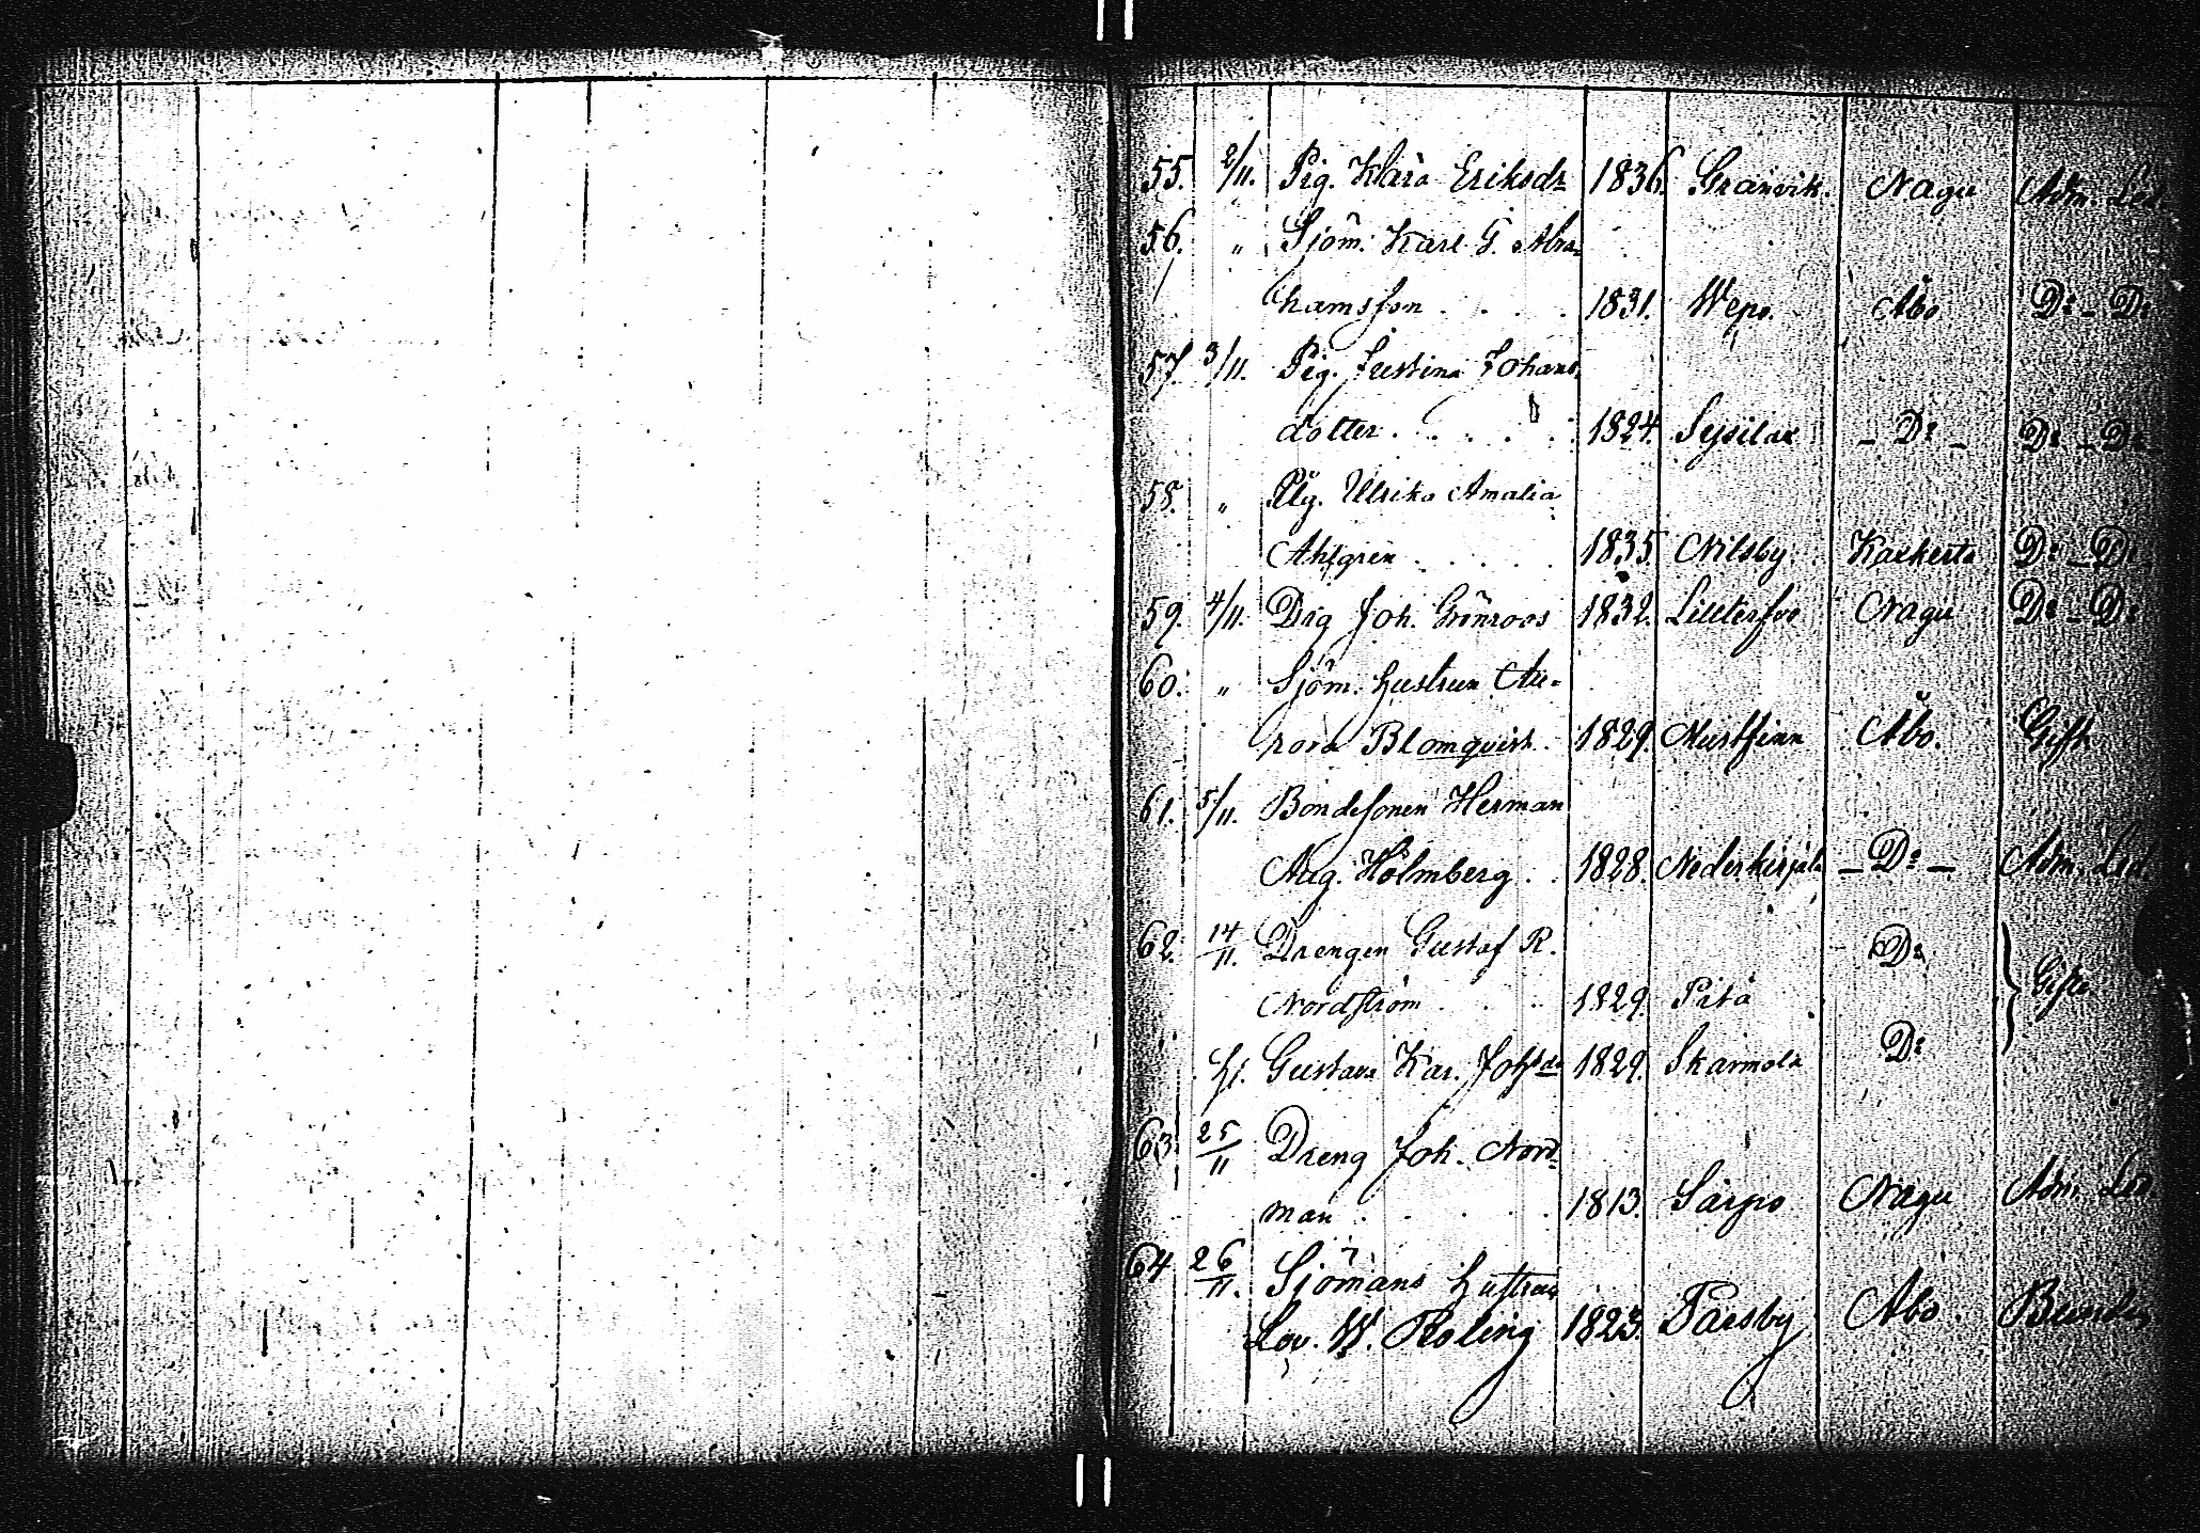 55. 2/11. Pig. Klara Eriksdr 1836. Granvik. Nagu Adm. Led.
56. " Sjöm. Karl G. Abra-
hamsson . . . . 1831. Wepo. Åbo Do - Do
57. 3/11. Pig. Justina Johans-
dotter . . . . . 1824. Sysilax - Do - Do - Do
58. " Pig. Ulrika Amalia
Ahlgren . . . . . 1835 Nilsby Do - Do
59. 4/11. Drg Joh. Grönroos 1832. Nagu Do - Do
60. " Sjöm. hustrun Au-
rora Blomqvist. 1829. Mustfinn Åbo. Gift
61. 5/11. Bondesonen Herman
Aug. Holmberg . . 1828. Nederkirjala - Do - Adm. Led.
62. 14/11. Drengen Gustaf R. Do
Nordström . . . 1829. Gifte.
h. Gustava Kar. Johsdr 1829. Skärmola Do
63. 25/11 Dreng Joh. Nord-
man . . . . . 1813. Särpo Nagu Adm. Led.
64. 26/11. Sjömans hustrun
Lov. W. Roling 1823. Pärsby Åbo.